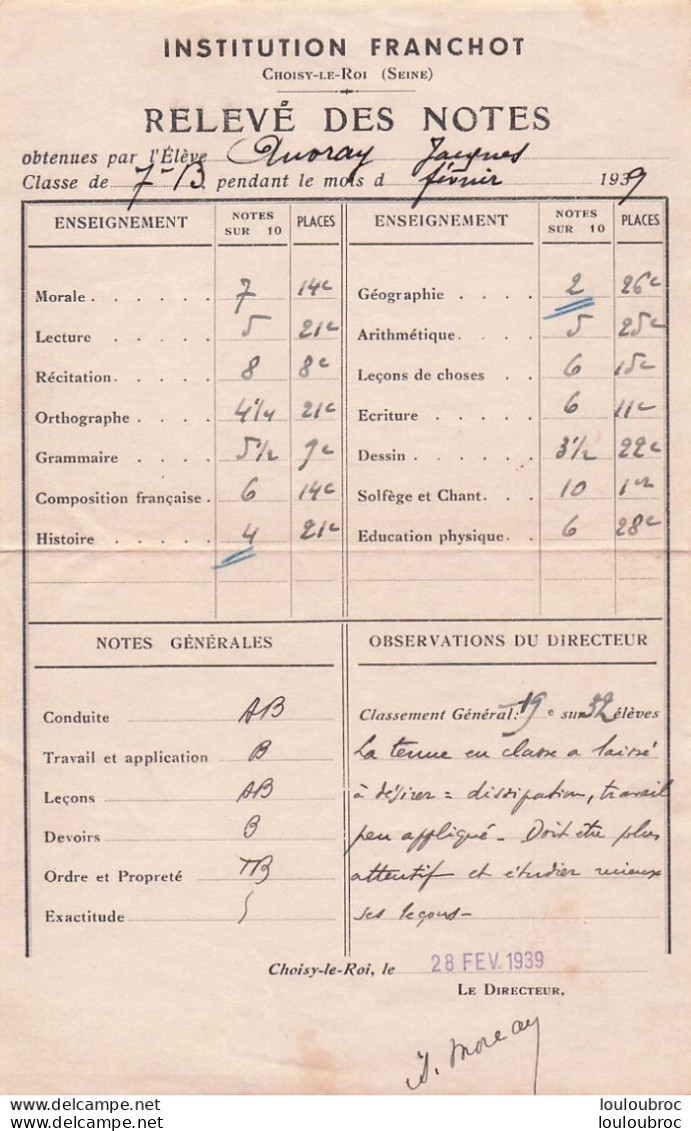 INSTITUTION FRANCHOT
CHOISY-LE-ROI (SEINE)
RELEVÉ DES NOTES
obtenues par l'Élève Auvray Jacques
Classe de 7e B pendant le mois d février 1939
ENSEIGNEMENT NOTES SUR 10 PLACES
Morale 7 14e
Lecture 5 21e
Récitation 8 8e
Orthographe 4 1/4 21e
Grammaire 5 1/2 9e
Composition française 6 14e
Histoire 4 21e
ENSEIGNEMENT NOTES SUR 10 PLACES
Géographie 2 26e
Arithmétique 5 25e
Leçons de choses 6 15e
Ecriture 6 11e
Dessin 3 1/2 22e
Solfège et Chant 10 1er
Education physique 6 28e
NOTES GÉNÉRALES
Conduite AB
Travail et application B
Leçons AB
Devoirs B
Ordre et Propreté TB
Exactitude
OBSERVATIONS DU DIRECTEUR
Classement Général: 19e sur 32 élèves
La tenue en classe a laissé
à désirer = dissipation, travail
peu appliqué - Doit être plus
attentif et étudier mieux
ses leçons -
Choisy-le-Roi, le 28 FEV. 1939
LE DIRECTEUR,
Moreau
delcampe.net
louloubroc
louloubroc